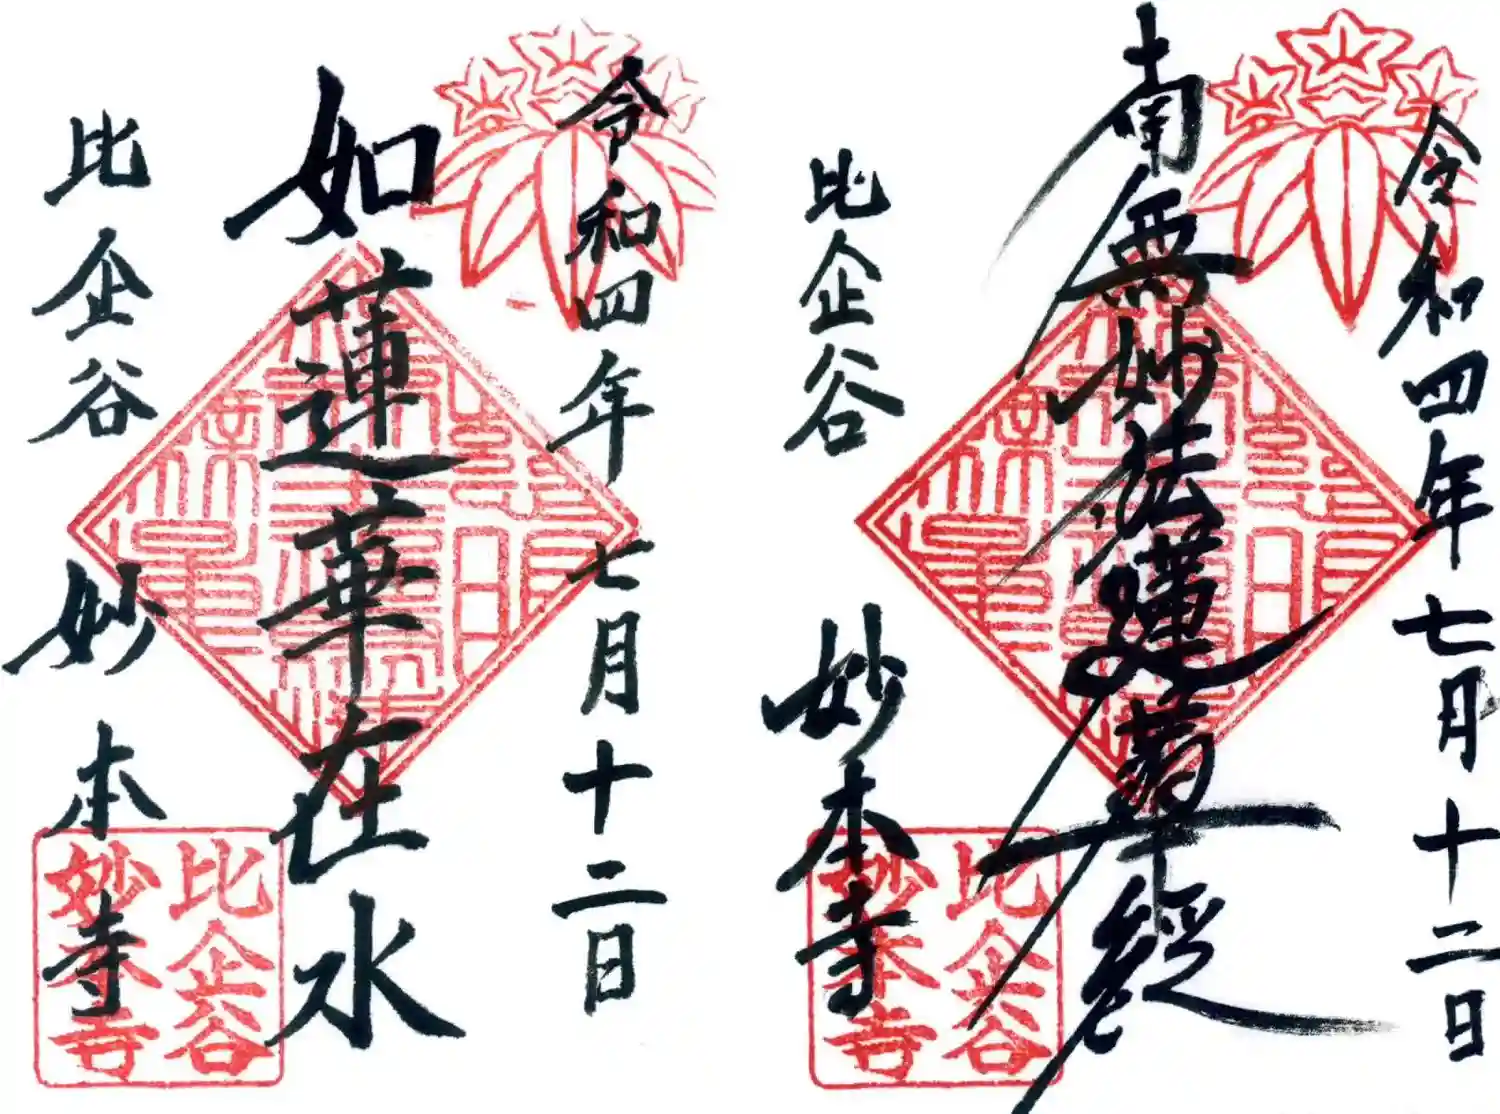 南無妙法蓮華経
令和四年七月十二日
比企谷
妙本寺
比企谷
妙本寺
令和四年七月十二日
如蓮華在水
比企谷
妙本寺
比企谷
妙本寺